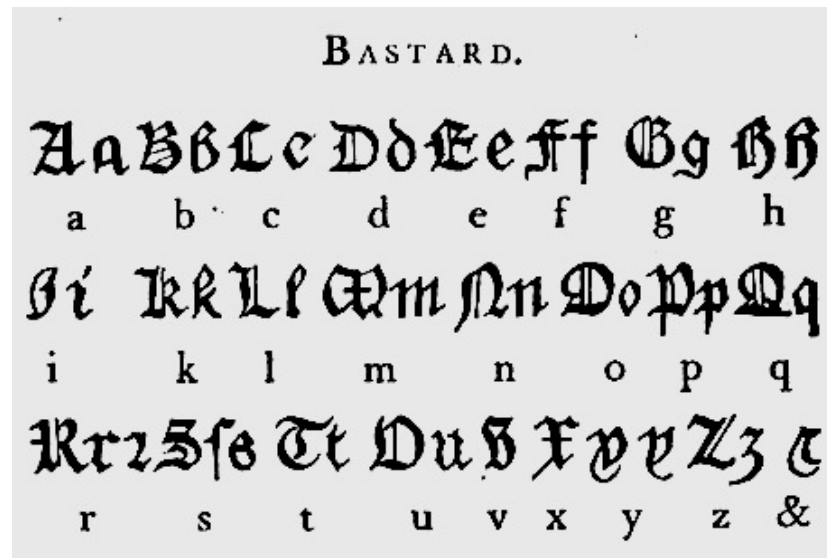 BASTARD.
Aa Bb Cc Dd Ee Ff Gg Hh
a b c d e f g h
Ii Kk Ll Mm Nn Oo Pp Qq
i k l m n o p q
Rrꝛ Sſs Tt Uu v X y y Zz &
r s t u v x y z &